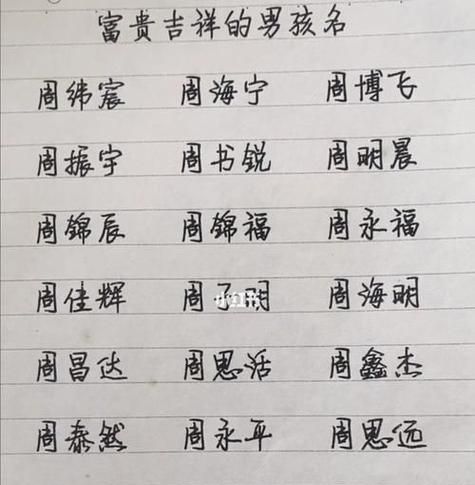 富贵吉祥的男孩名
周纬宸 周海宁 周博飞
周振宇 周书锐 周明晨
周锦辰 周锦福 周永福
周佳辉 周子明 周海明
小红书
周昌达 周思活 周鑫杰
周泰然 周永平 周思远